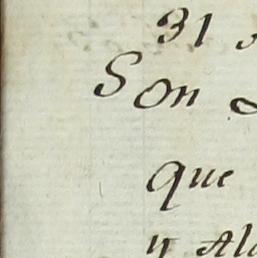 31
Son
que
y Al